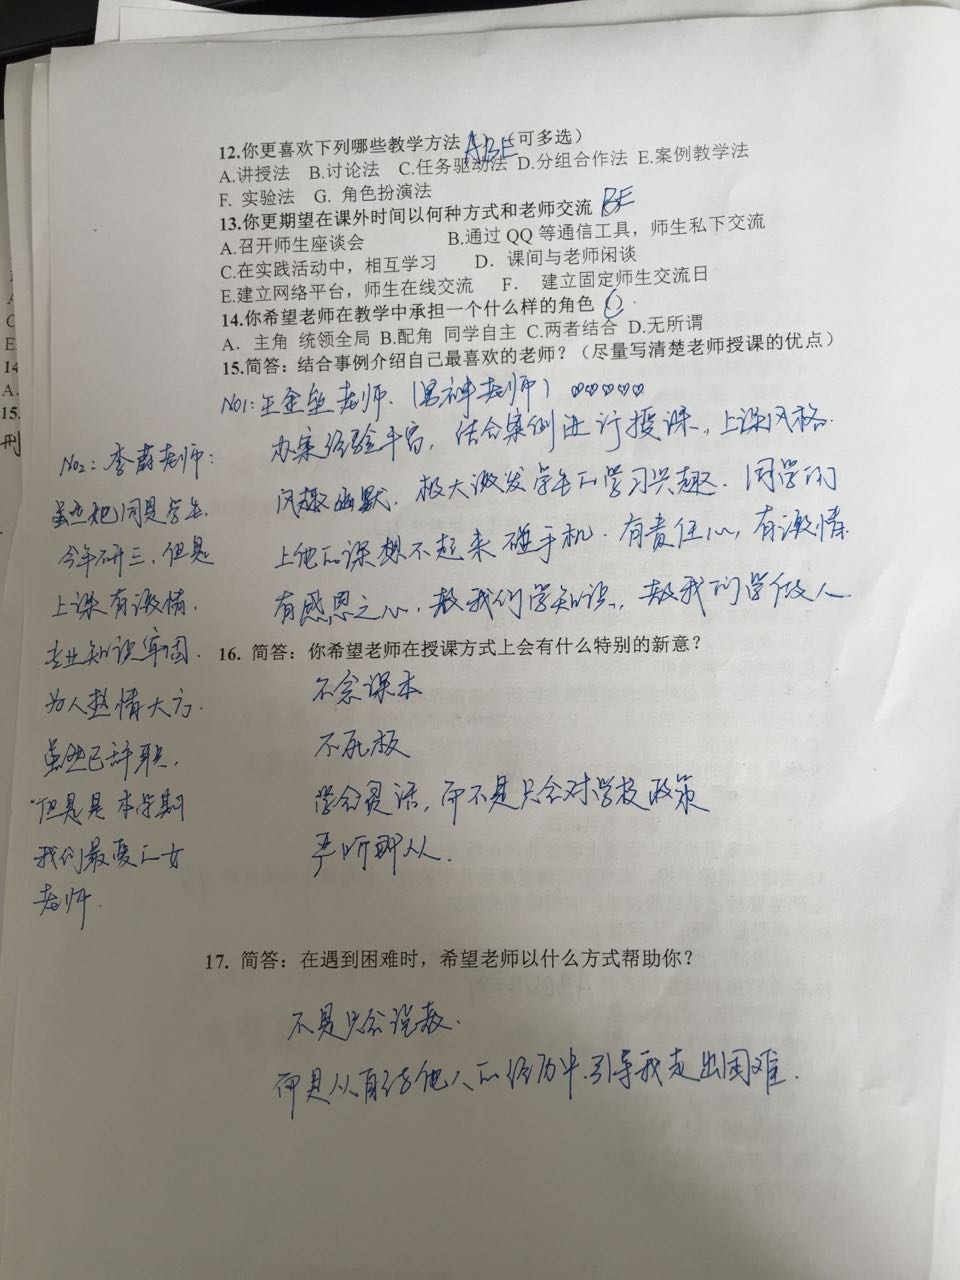 12.你更喜欢下列哪些教学方法 ABE (可多选)
A.讲授法 B.讨论法 C.任务驱动法 D.分组合作法 E.案例教学法
F. 实验法 G. 角色扮演法
13.你更期望在课外时间以何种方式和老师交流 BE
A.召开师生座谈会 B.通过 QQ 等通信工具，师生私下交流
C.在实践活动中，相互学习 D．课间与老师闲谈
E.建立网络平台，师生在线交流 F． 建立固定师生交流日
14.你希望老师在教学中承担一个什么样的角色 C
A．主角 统领全局 B.配角 同学自主 C.两者结合 D.无所谓
15.简答：结合事例介绍自己最喜欢的老师？（尽量写清楚老师授课的优点）
NO1: 王金 老师. (男神老师) ♡♡♡♡♡
办案经验丰富，结合案例进行授课，上课风格
风趣幽默，极大激发学生的学习兴趣．同学们
上他的课想不起来碰手机．有责任心，有激情.
有感恩之心，教我们学知识，教我们学做人.
No2：李蔚老师：
虽然她同是学生，
今年研三，但是
上课有激情，
专业知识牢固．
为人热情大方．
虽然已辞职，
但是是本学期
我们最爱的女
老师．
16. 简答：你希望老师在授课方式上会有什么特别的新意？
不念课本
不死板
学会灵活，而不是只会对学校政策
严听即从．
17. 简答：在遇到困难时，希望老师以什么方式帮助你？
不是只会说教．
而是从自己或他人的经历中，引导我走出困难．
14
A.
15.
刑